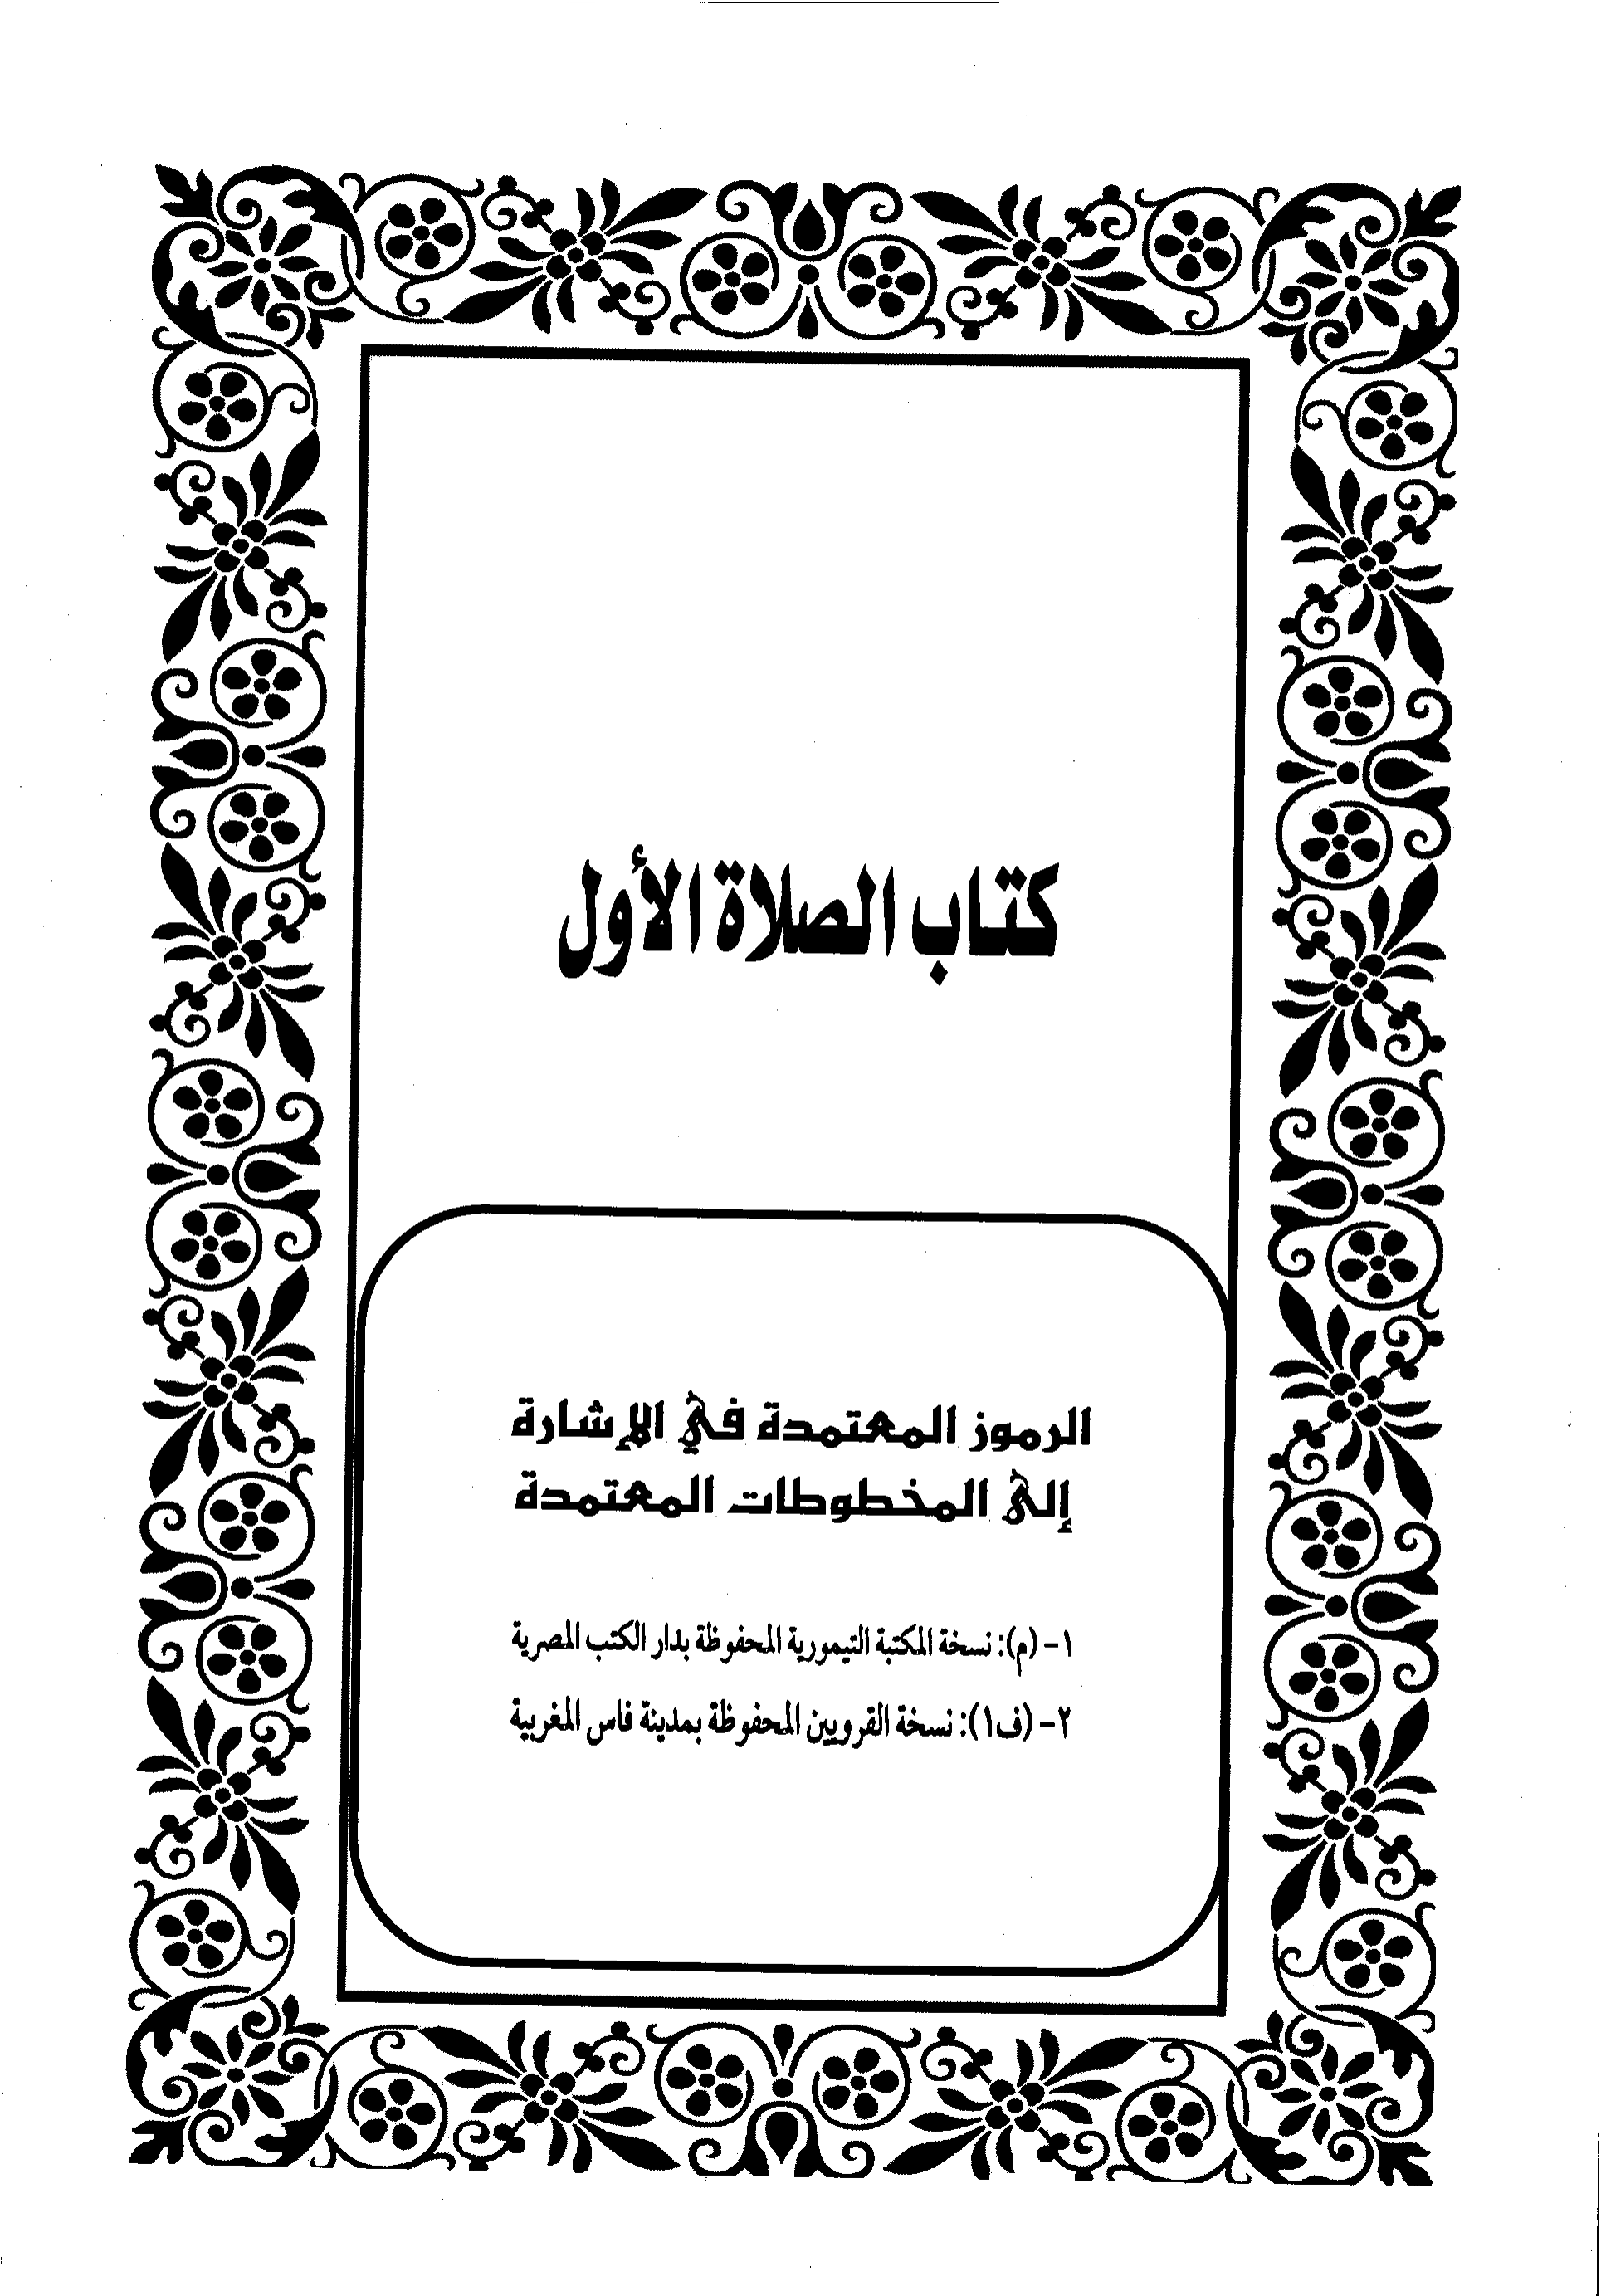 كتاب الصلاة الأول
الرموز المعتمدة في الإشارة
إلى المخطوطات المعتمدة
١- (م): نسخة المكتبة التيمورية المحفوظة بدار الكتب المصرية
٢- (ف١): نسخة القرويين المحفوظة بمدينة فاس المغربية